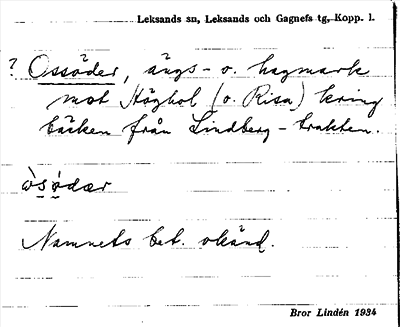 Leksands sn, Leksands och Gagnefs tg, Kopp. l.
? Ossöder, ängs- o. hagmark
mot Högbol (o. Risa) kring
bäcken från Lindberg-trakten.
òsǫ́dær
Namnets bet. okänd.
Bror Lindén 1934